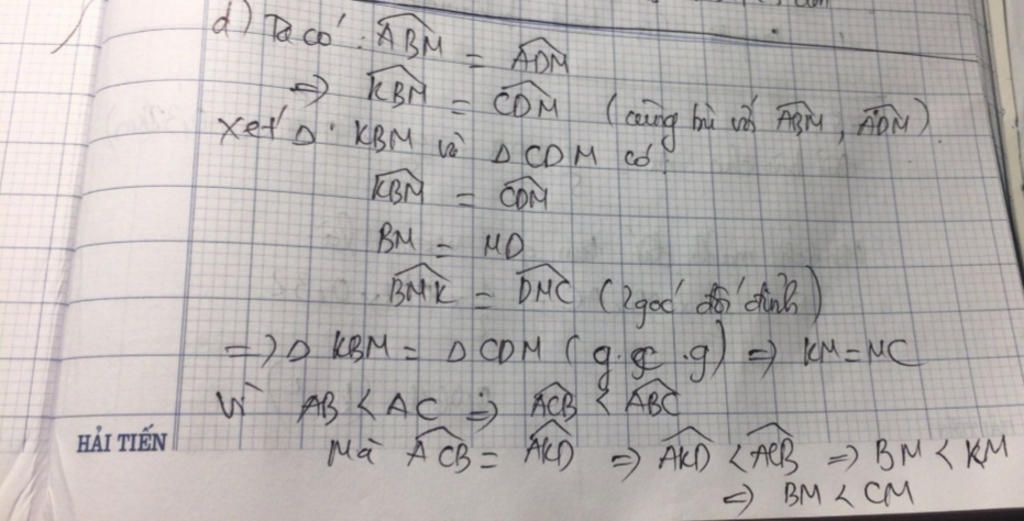 d) Ta có: ABM = ADM
=> KBM = CDM (cùng bù với ABM, ADM)
Xét Δ KBM và Δ CDM có
KBM = CDM
BM = MD
BMK = DMC (2 góc đối đỉnh)
=> Δ KBM = Δ CDM (g.c.g) => KM = MC
Vì AB < AC => ACB < ABC
HẢI TIẾN
Mà ACB = AKD => AKD < ACB => BM < KM
=> BM < CM